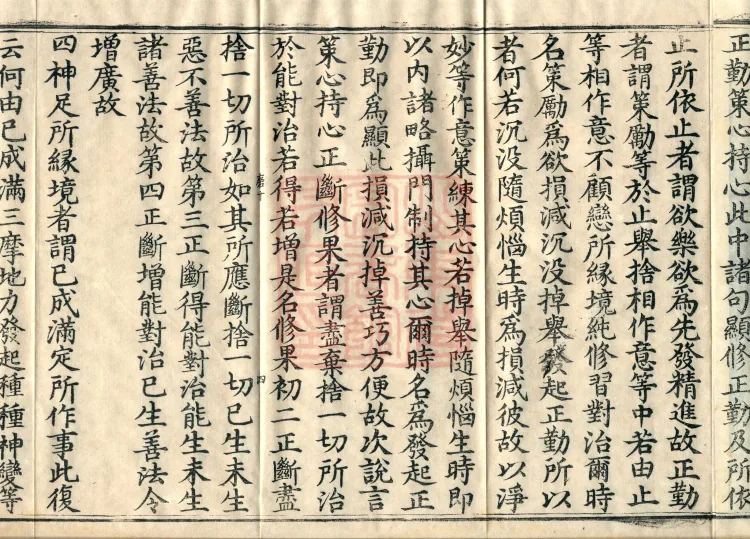 正勤策心持心此中諸句顯修正勤及所依
止所依止者謂欲樂欲為先發精進故正勤
者謂策勵等於止舉捨相作意等中若由止
等相作意不顧戀所緣境純修習對治爾時
名策勵為欲損減沉没掉舉發起正勤所以
者何若沉没隨煩惱生時為損減彼故以淨
妙等作意策練其心若掉舉隨煩惱生時即
以内諸略攝門制持其心爾時名為發起正
勤即為顯此損減沉掉善巧方便故次說言
策心持心正斷修果者謂盡棄捨一切所治
於能對治若得若增是名修果初二正斷盡
捨一切所治如其所應斷捨一切已生未生
惡不善法故第三正斷得能對治能生未生
諸善法故第四正斷增能對治已生善法令
增廣故
四神足所緣境者謂已成滿定所作事此復
云何由已成滿三摩地力發起種種神變等